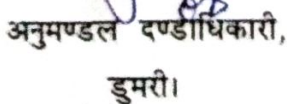 अनुमण्डल दण्डाधिकारी,
डुमरी।